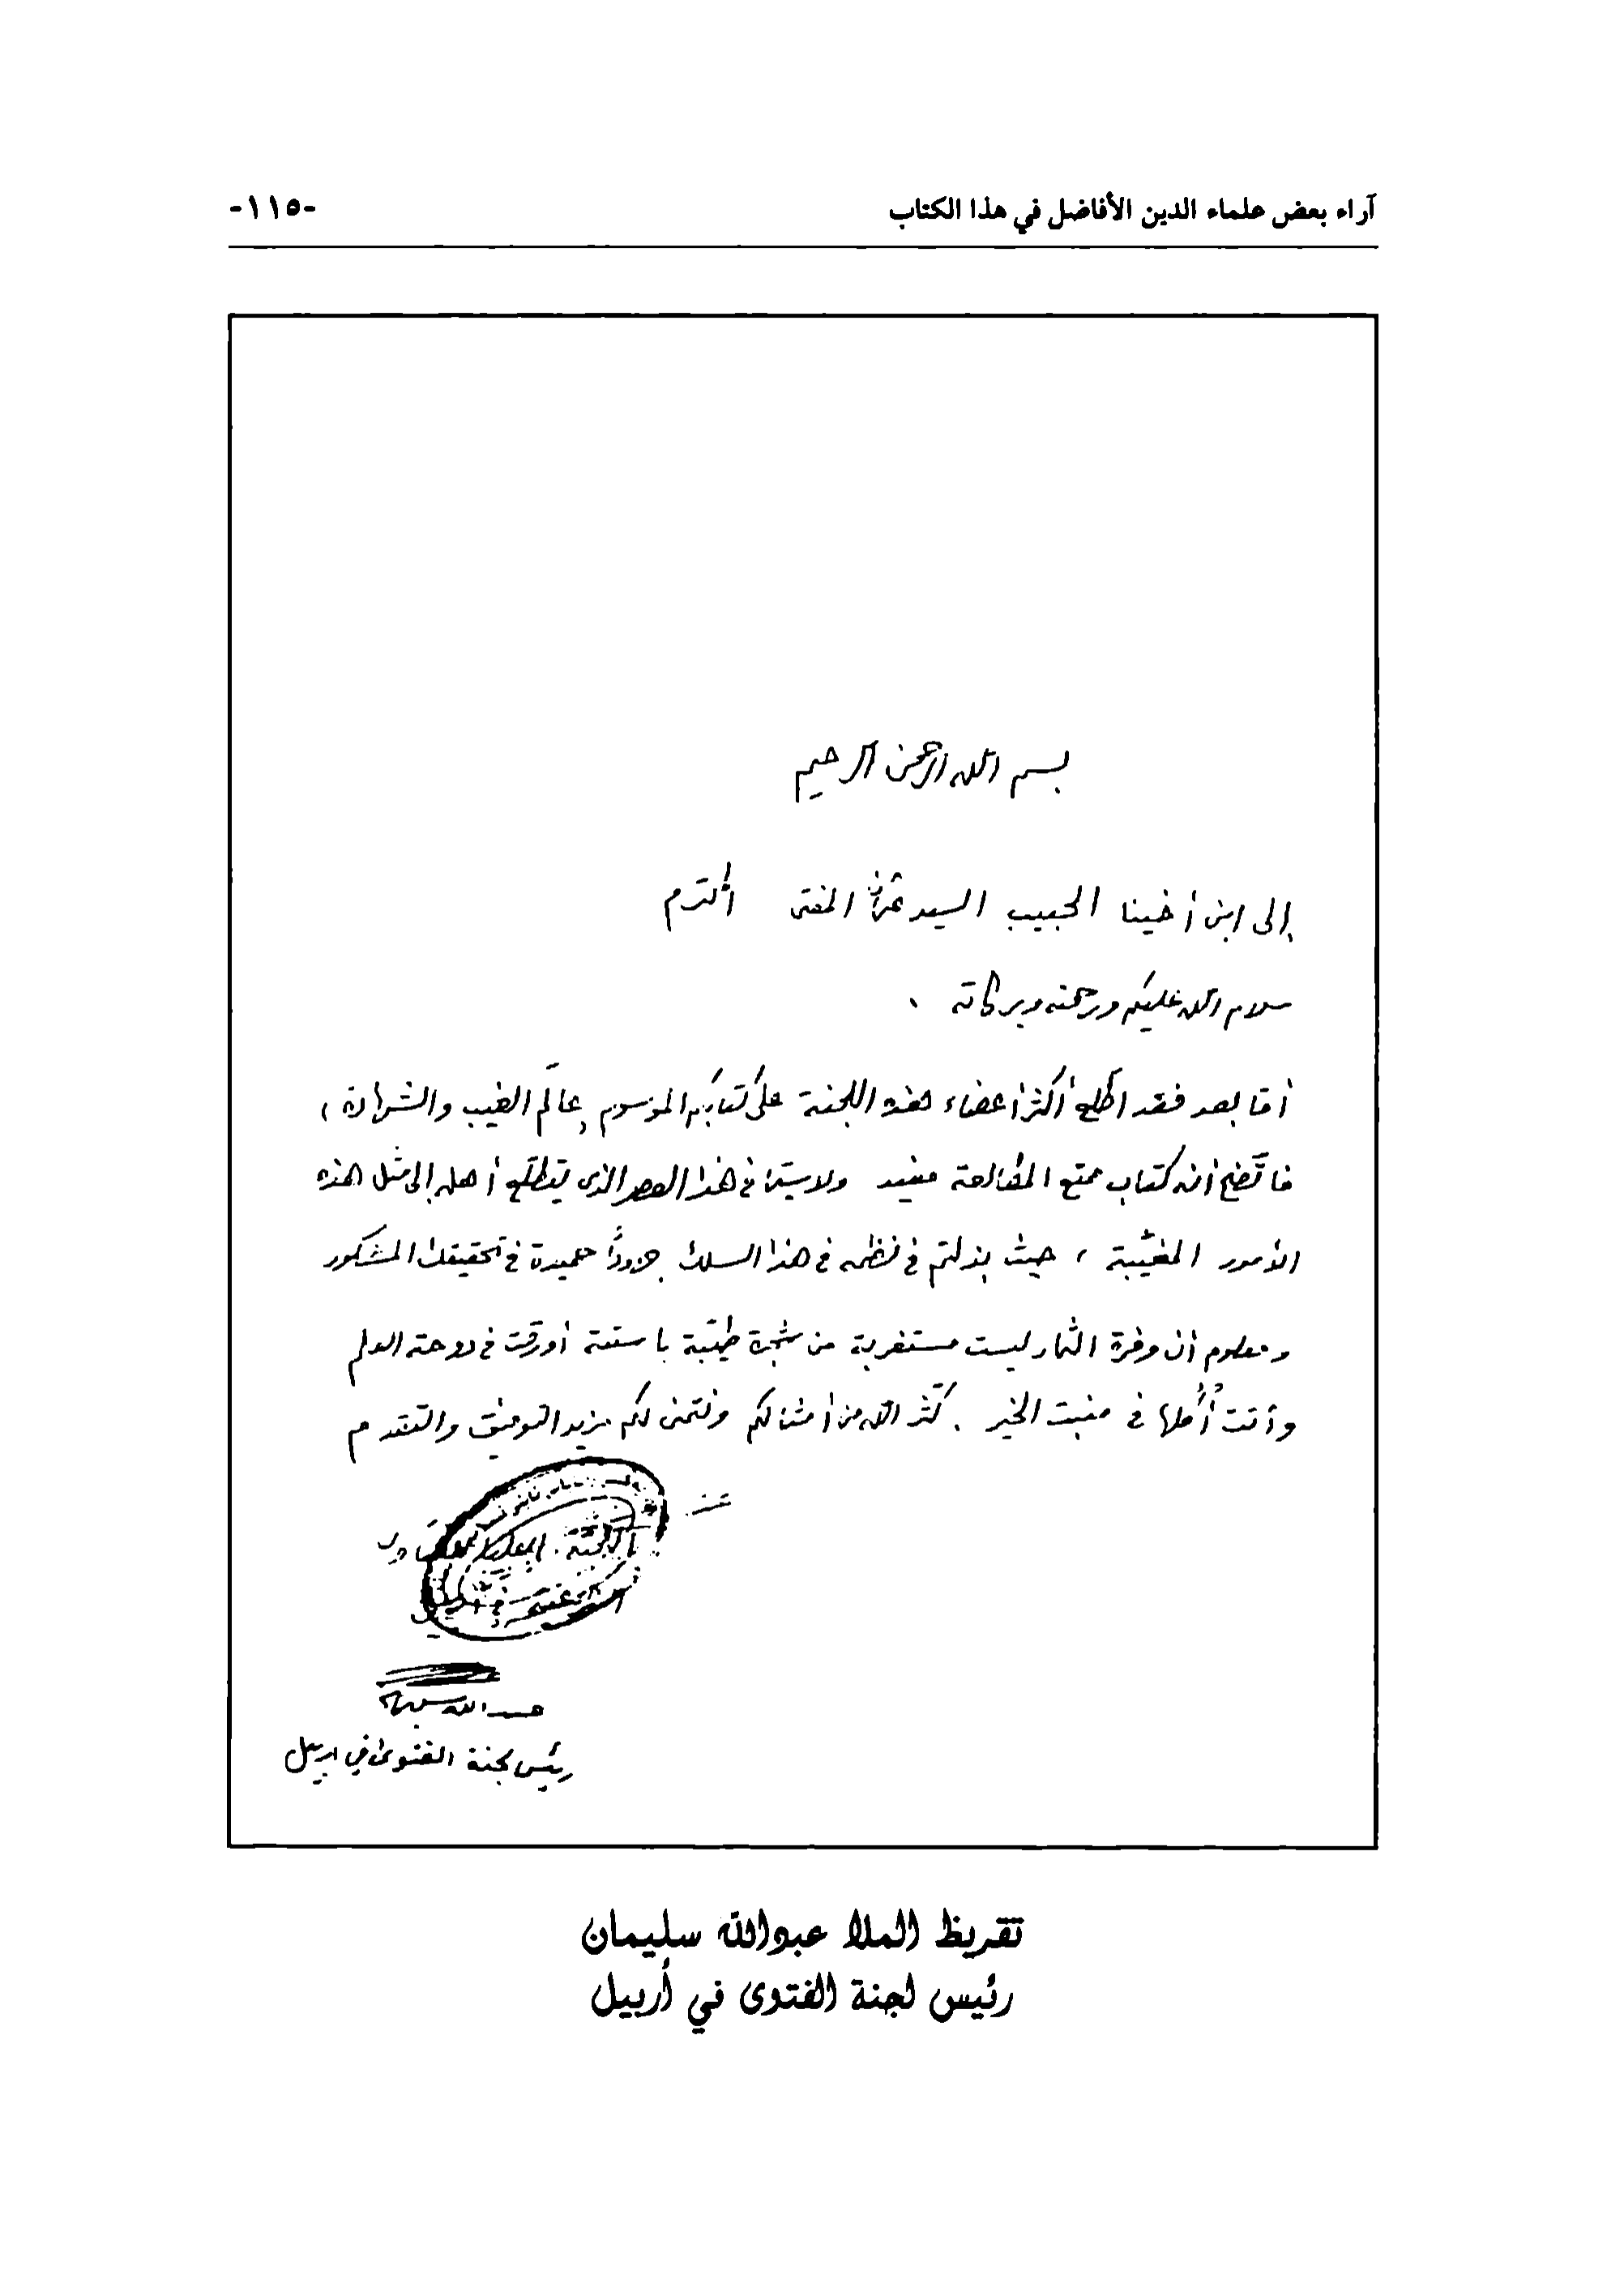 آراء بعض علماء الدين الأفاضل في هذا الكتاب
-١١٥-
بسم الله الرحمن الرحيم
إلى ابن أخينا الحبيب السيد المفتى
سلام الله عليكم ورحمته وبركاته .
أمّا بعد فقد اطّلع أكثر أعضاء هذه اللجنة على كتابكم الموسوم بعالَم الغيب والشهادة ،
فاتّضح أنه كتاب ممتع المطالعة مفيد ولاسيّما في هذا العصر الذى يتطلّع أهله إلى مثل هذه
الأمور المغيّبة ، حيث بذلتم في نظمه في هذا السلك جهودًا حميدة في تحقيقك المشكور
ومعلوم أن وفرة الثمار ليست مستغربة من شجرة طيّبة باسقة أورقت في دوحة العلم
وأنت أُكُلها في منبت الخير . كثّر الله من أمثالكم ونتمنى لكم مزيد التوفيق والتقدم
عن
اللجنة العليا
في
عبدالله سليمان
رئيس لجنة الفتوى في اربيل
تقريظ الملا عبدالله سليمان
رئيس لجنة الفتوى في أربيل